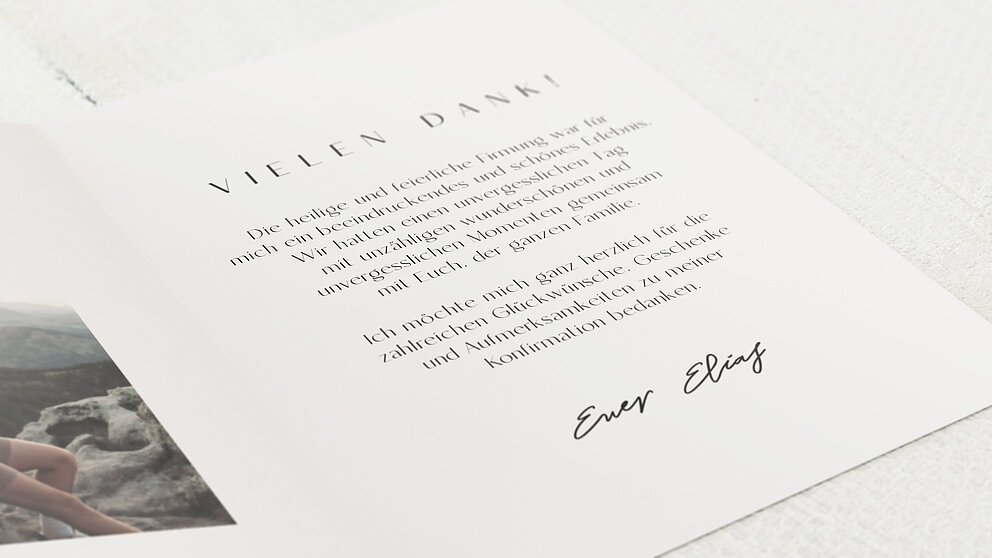 VIELEN DANK!
Die heilige und feierliche Firmung war für
mich ein beeindruckendes und schönes Erlebnis.
Wir hatten einen unvergesslichen Tag
mit unzähligen wunderschönen und
unvergesslichen Momenten gemeinsam
mit Euch, der ganzen Familie.
Ich möchte mich ganz herzlich für die
zahlreichen Glückwünsche, Geschenke
und Aufmerksamkeiten zu meiner
Konfirmation bedanken.
Euer Elias